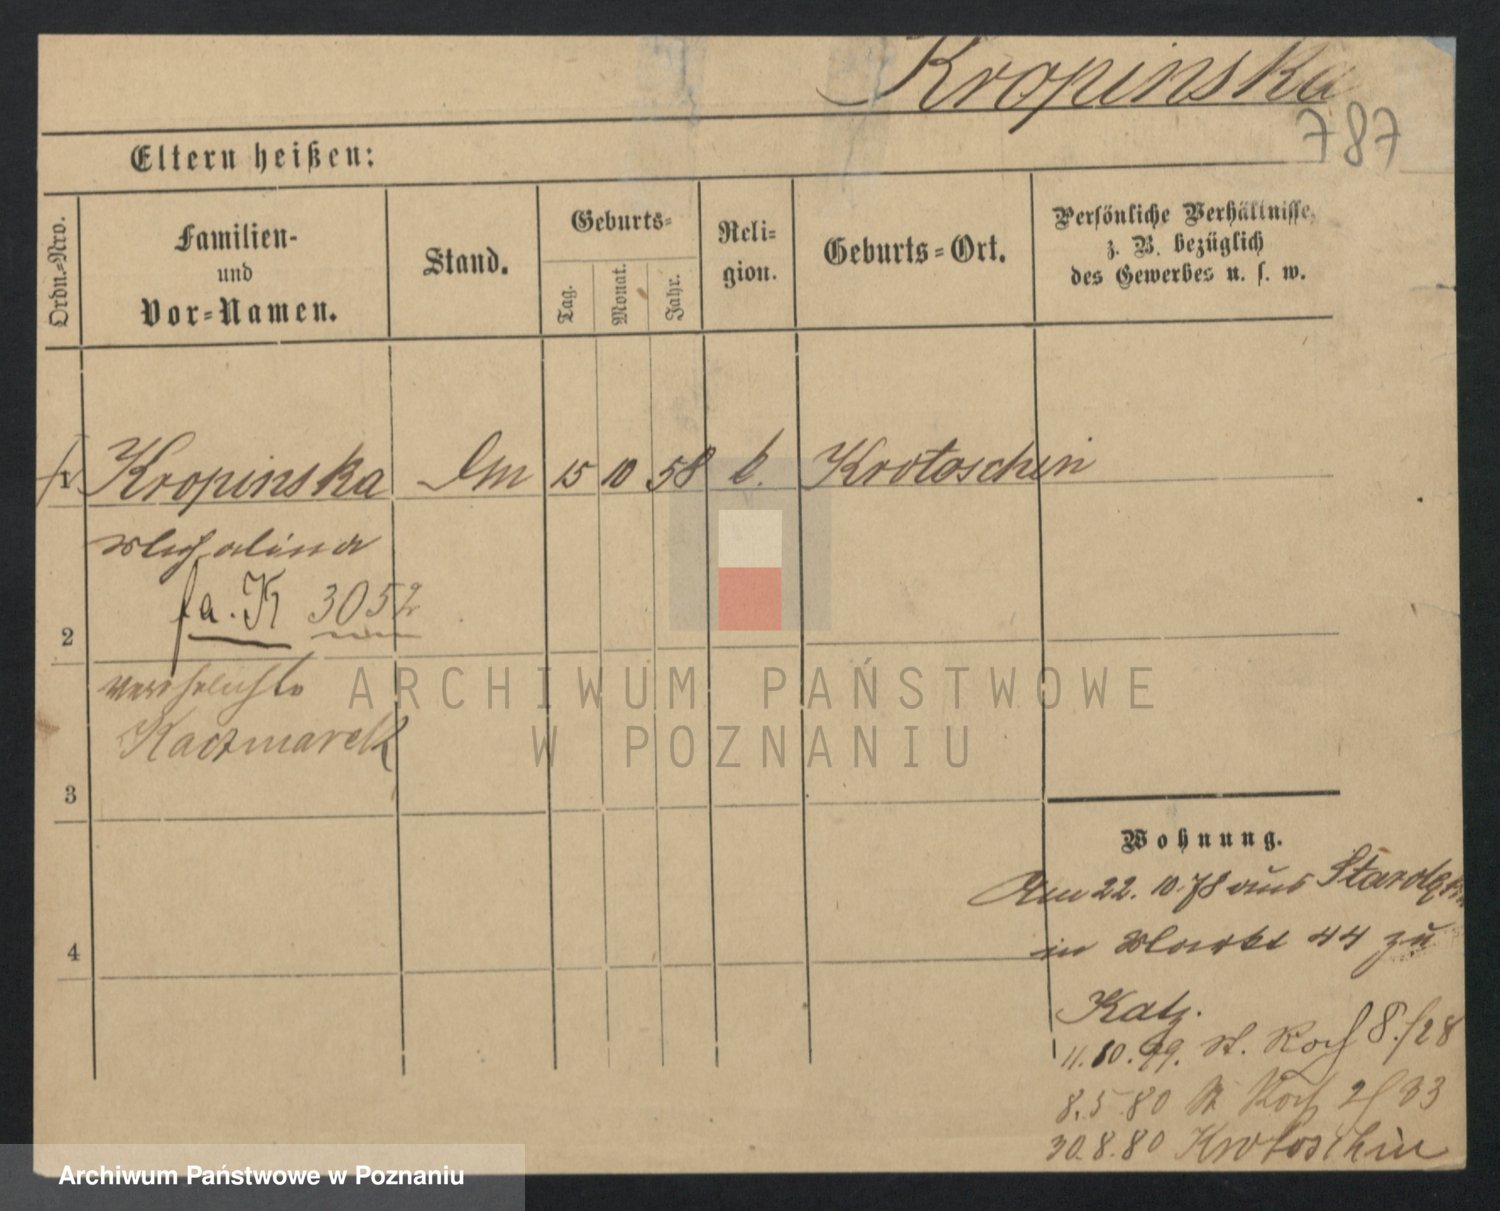 Kropinska
787
Eltern heißen:
Ordn.-Nro.
Familien-
und
Vor-Namen.
Stand.
Geburts-
Tag.
Monat.
Jahr.
Reli-
gion.
Geburts-Ort.
Persönliche Verhältnisse,
z. B. bezüglich
des Gewerbes u. s. w.
1 Kropinska 15 10 58 k. Krotoschin
Michalina
fa. K 3052
2
verehelichte
Kaczmarek
3
Wohnung.
Am 22. 10. 78 aus
in Markt 44 zu
4
Katz.
11. 10. 79. St. Roch 8./28
8. 5 80 St Roch 2/33
30. 8. 80 Krotoschin
ARCHIWUM PAŃSTWOWE
W POZNANIU
Archiwum Państwowe w Poznaniu